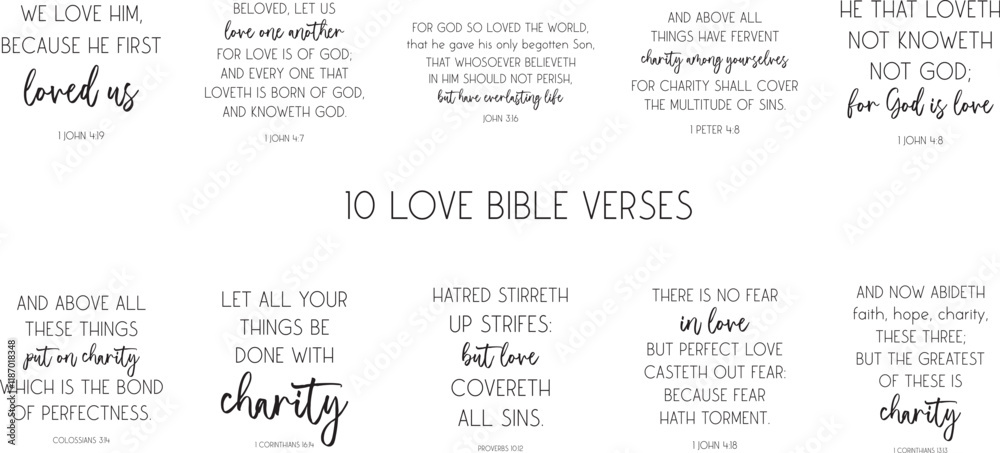 WE LOVE HIM,
BECAUSE HE FIRST
loved us
1 JOHN 4:19
BELOVED, LET US
love one another
FOR LOVE IS OF GOD;
AND EVERY ONE THAT
LOVETH IS BORN OF GOD,
AND KNOWETH GOD.
1 JOHN 4:7
FOR GOD SO LOVED THE WORLD,
that he gave his only begotten Son,
THAT WHOSOEVER BELIEVETH
IN HIM SHOULD NOT PERISH,
but have everlasting life
JOHN 3:16
AND ABOVE ALL
THINGS HAVE FERVENT
charity among yourselves
FOR CHARITY SHALL COVER
THE MULTITUDE OF SINS.
1 PETER 4:8
HE THAT LOVETH
NOT KNOWETH
NOT GOD;
for God is love
1 JOHN 4:8
10 LOVE BIBLE VERSES
AND ABOVE ALL
THESE THINGS
put on charity
WHICH IS THE BOND
OF PERFECTNESS.
COLOSSIANS 3:14
LET ALL YOUR
THINGS BE
DONE WITH
charity
1 CORINTHIANS 16:14
HATRED STIRRETH
UP STRIFES:
but love
COVERETH
ALL SINS.
PROVERBS 10:12
THERE IS NO FEAR
in love
BUT PERFECT LOVE
CASTETH OUT FEAR:
BECAUSE FEAR
HATH TORMENT.
1 JOHN 4:18
AND NOW ABIDETH
faith, hope, charity,
THESE THREE;
BUT THE GREATEST
OF THESE IS
charity
1 CORINTHIANS 13:13
Adobe Stock | #1187018348